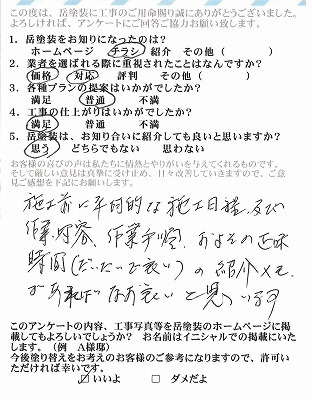 この度は、岳塗装に工事のご用命賜り誠にありがとうございました。
よろしければ、アンケートにご回答ご協力お願い致します。
1. 岳塗装をお知りになったのは?
ホームページ チラシ 紹介 その他（ ）
2. 業者を選ばれる際に重視されたことはなんですか?
価格 対応 評判 その他（ ）
3. 各種プランの提案はいかがでしたか?
満足 普通 不満
4. 工事の仕上がりはいかがでしたか?
満足 普通 不満
5. 岳塗装は、お知り合いに紹介しても良いと思いますか?
思う どちらでもない 思わない
お客様の喜びの声は私たちに情熱とやりがいを与えてくれるものです。
そして厳しい意見は真摯に受け止め、日々改善していきますので、ご意
見ご感想を下記にお願いします。
施工前に平均的な施工日程及び
作業内容、作業手順、およその正味
時間（だいたいで良い）の紹介メモ
があればなお良いと思います
このアンケートの内容、工事写真等を岳塗装のホームページに掲
載してもよろしいでしょうか? お名前はイニシャルでの掲載にいた
します。（例 A様邸）
今後塗り替えをお考えのお客様のご参考になりますので、許可い
ただければ幸いです。
☑ いいよ □ ダメだよ